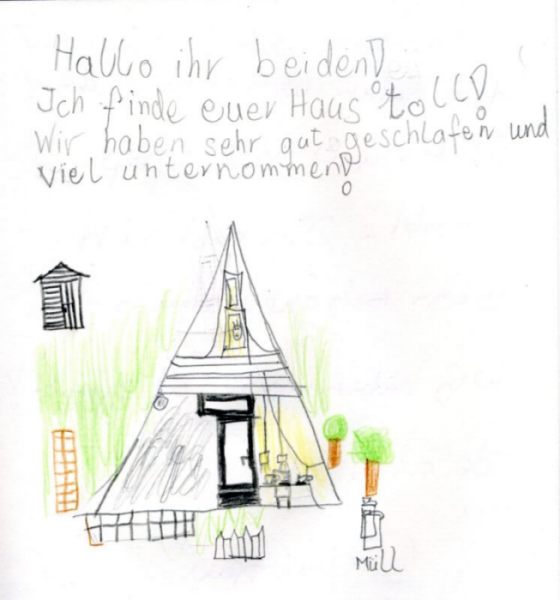 Hallo ihr beiden!
Ich finde euer Haus toll!
Wir haben sehr gut geschlafen und
viel unternommen!
Müll